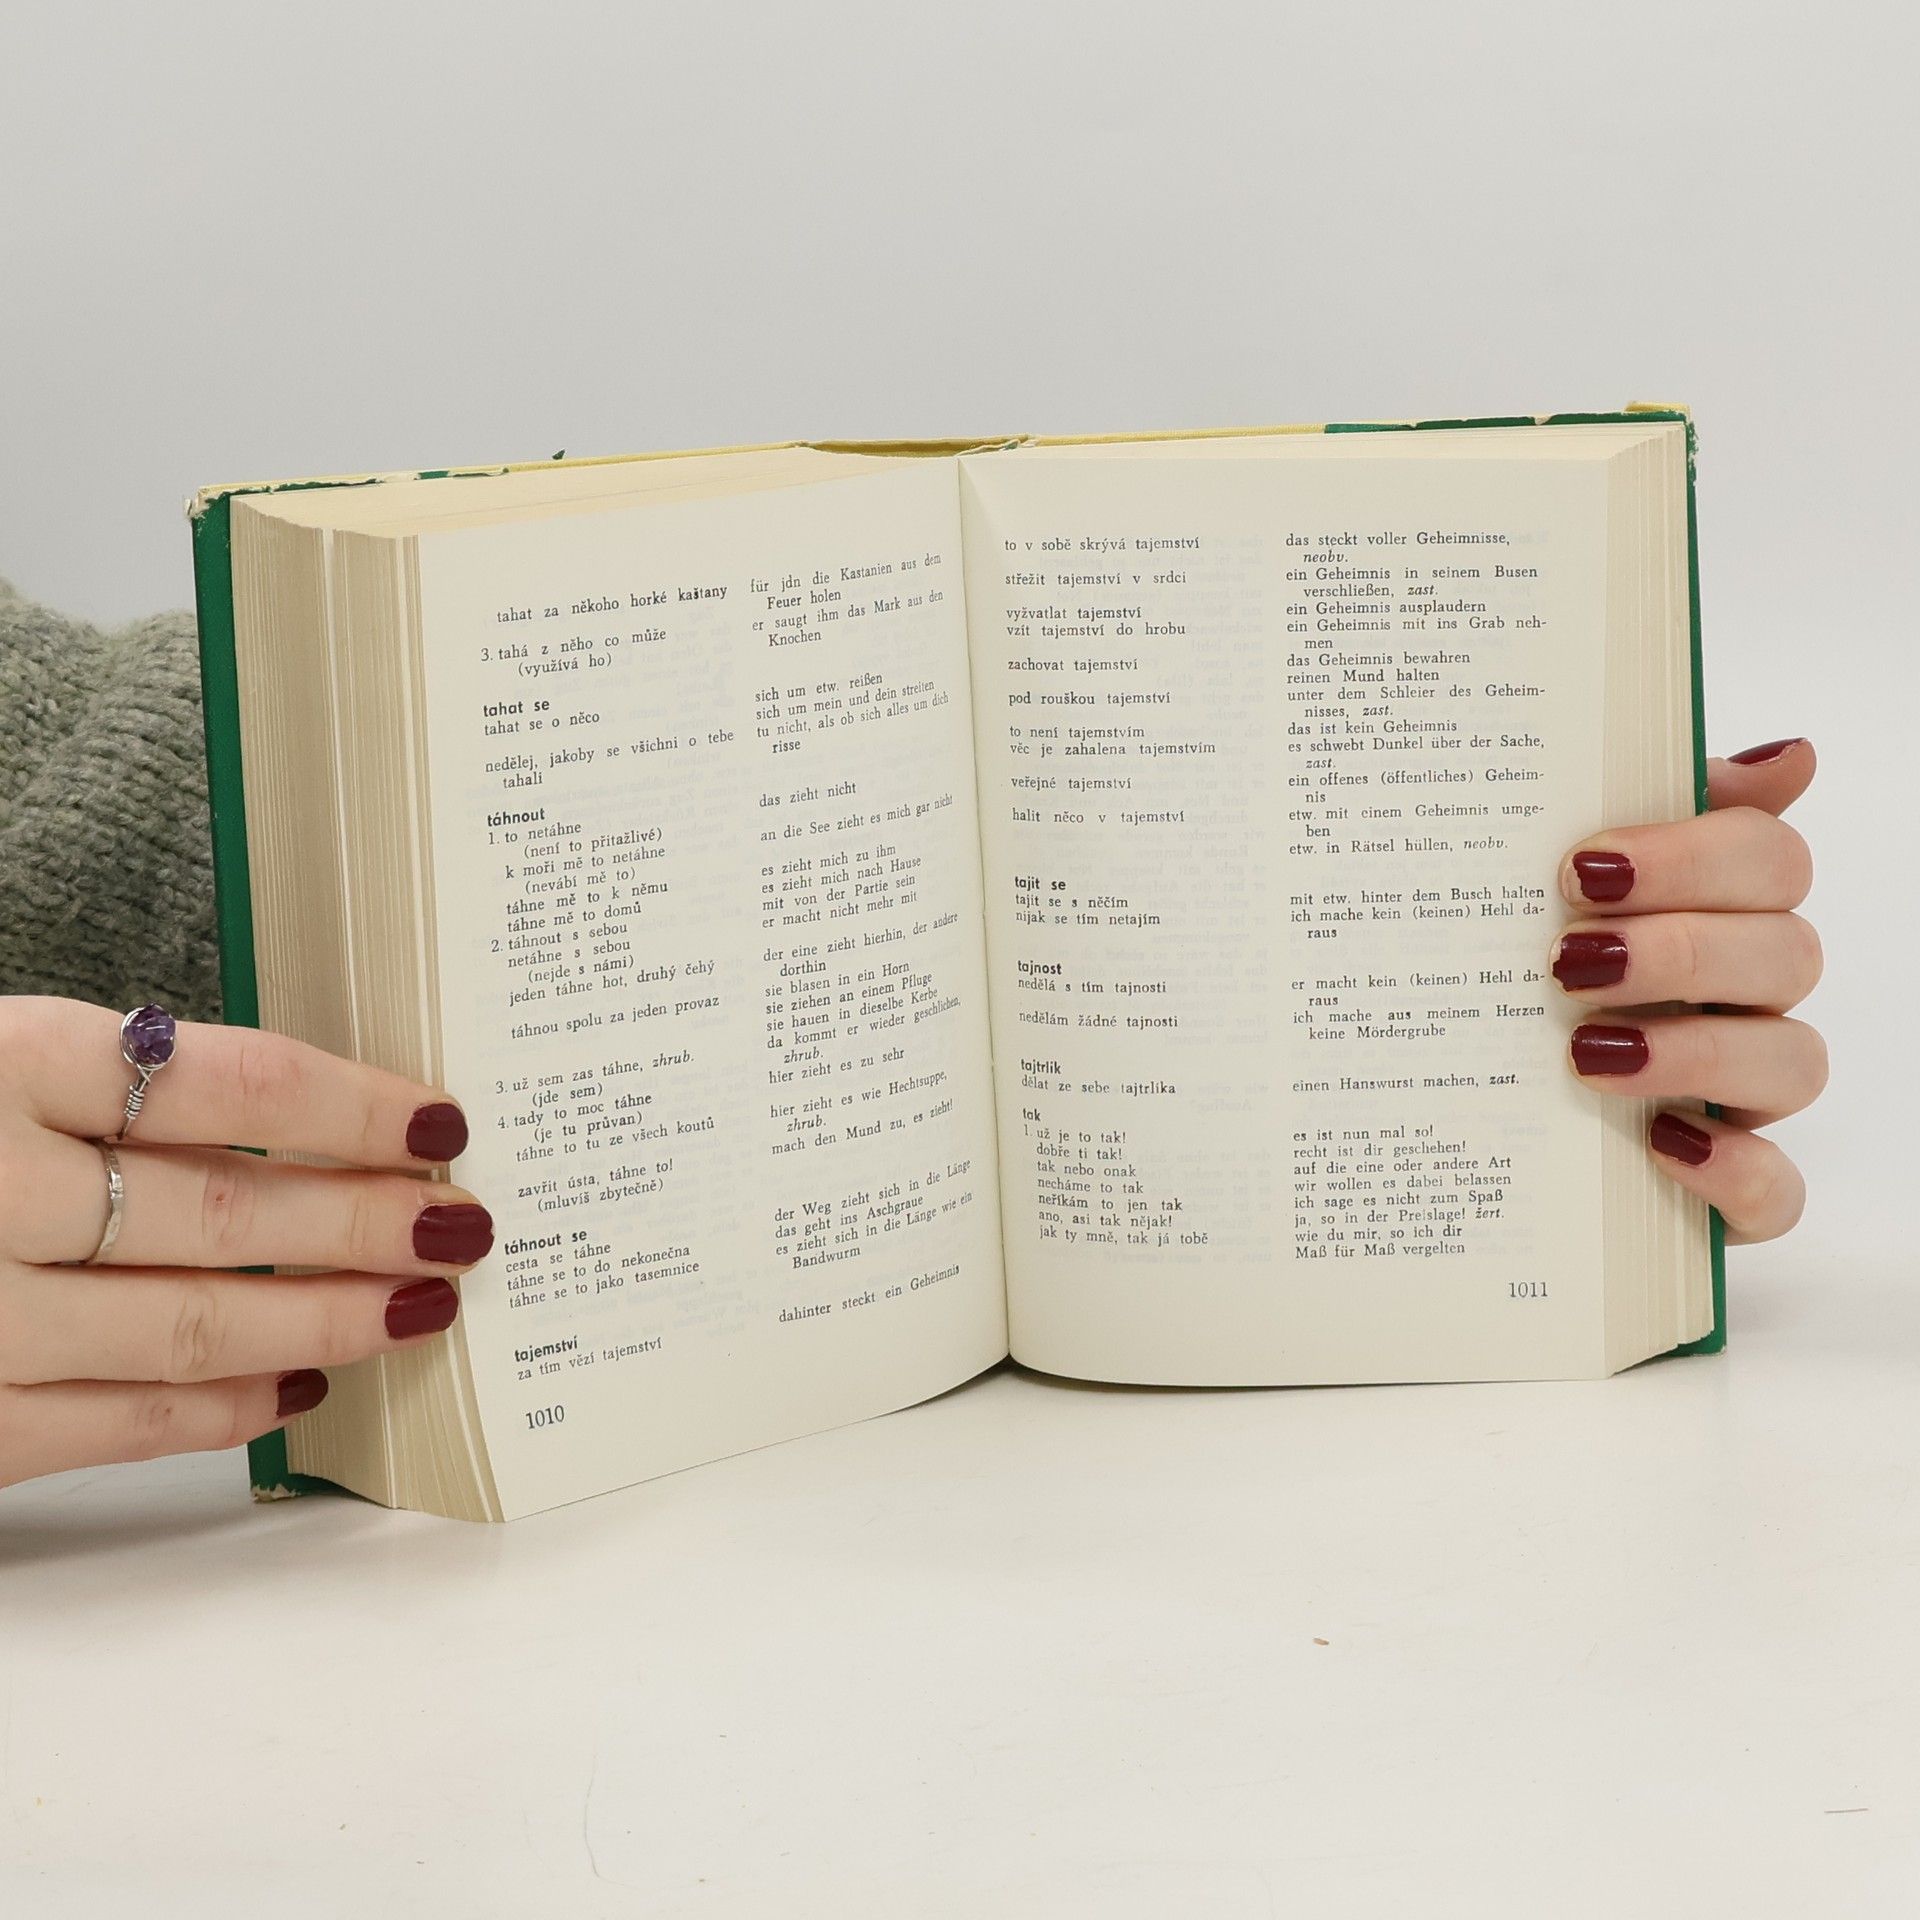 tahat za někoho horké kaštany
3. tahá z něho co může
(využívá ho)
tahat se
tahat se o něco
nedělej, jakoby se všichni o tebe
tahali
táhnout
1. to netáhne
(není to přitažlivé)
k moři mě to netáhne
(nevábí mě to)
táhne mě to k němu
táhne mě to domů
2. táhnout s sebou
netáhne s sebou
(nejde s námi)
jeden táhne hot, druhý čehý
táhnou spolu za jeden provaz
3. už sem zas táhne, zhrub.
(jde sem)
4. tady to moc táhne
(je tu průvan)
táhne to tu ze všech koutů
zavřít ústa, táhne to!
(mluvíš zbytečně)
táhnout se
cesta se táhne
táhne se to do nekonečna
táhne se to jako tasemnice
tajemství
za tím vězí tajemství
1010
für jdn die Kastanien aus dem
Feuer holen
er saugt ihm das Mark aus den
Knochen
sich um etw. reißen
sich um mein und dein streiten
tu nicht, als ob sich alles um dich
risse
das zieht nicht
an die See zieht es mich gar nicht
es zieht mich zu ihm
es zieht mich nach Hause
mit von der Partie sein
er macht nicht mehr mit
der eine zieht hierhin, der andere
dorthin
sie blasen in ein Horn
sie ziehen an einem Pfluge
sie hauen in dieselbe Kerbe
da kommt er wieder geschlichen,
zhrub.
hier zieht es zu sehr
hier zieht es wie Hechtsuppe,
zhrub.
mach den Mund zu, es zieht!
der Weg zieht sich in die Länge
das geht ins Aschgraue
es zieht sich in die Länge wie ein
Bandwurm
dahinter steckt ein Geheimnis
to v sobě skrývá tajemství
střežit tajemství v srdci
vyžvatlat tajemství
vzít tajemství do hrobu
zachovat tajemství
pod rouškou tajemství
to není tajemstvím
věc je zahalena tajemstvím
veřejné tajemství
halit něco v tajemství
tajit se
tajit se s něčím
nijak se tím netajím
tajnost
nedělá s tím tajnosti
nedělám žádné tajnosti
tajtrlík
dělat ze sebe tajtrlíka
tak
1. už je to tak!
dobře ti tak!
tak nebo onak
necháme to tak
neříkám to jen tak
ano, asi tak nějak!
jak ty mně, tak já tobě
das steckt voller Geheimnisse,
neobv.
ein Geheimnis in seinem Busen
verschließen, zast.
ein Geheimnis ausplaudern
ein Geheimnis mit ins Grab neh-
men
das Geheimnis bewahren
reinen Mund halten
unter dem Schleier des Geheim-
nisses, zast.
das ist kein Geheimnis
es schwebt Dunkel über der Sache,
zast.
ein offenes (öffentliches) Geheim-
nis
etw. mit einem Geheimnis umge-
ben
etw. in Rätsel hüllen, neobv.
mit etw. hinter dem Busch halten
ich mache kein (keinen) Hehl da-
raus
er macht kein (keinen) Hehl da-
raus
ich mache aus meinem Herzen
keine Mördergrube
einen Hanswurst machen, zast.
es ist nun mal so!
recht ist dir geschehen!
auf die eine oder andere Art
wir wollen es dabei belassen
ich sage es nicht zum Spaß
ja, so in der Preislage! žert.
wie du mir, so ich dir
Maß für Maß vergelten
1011